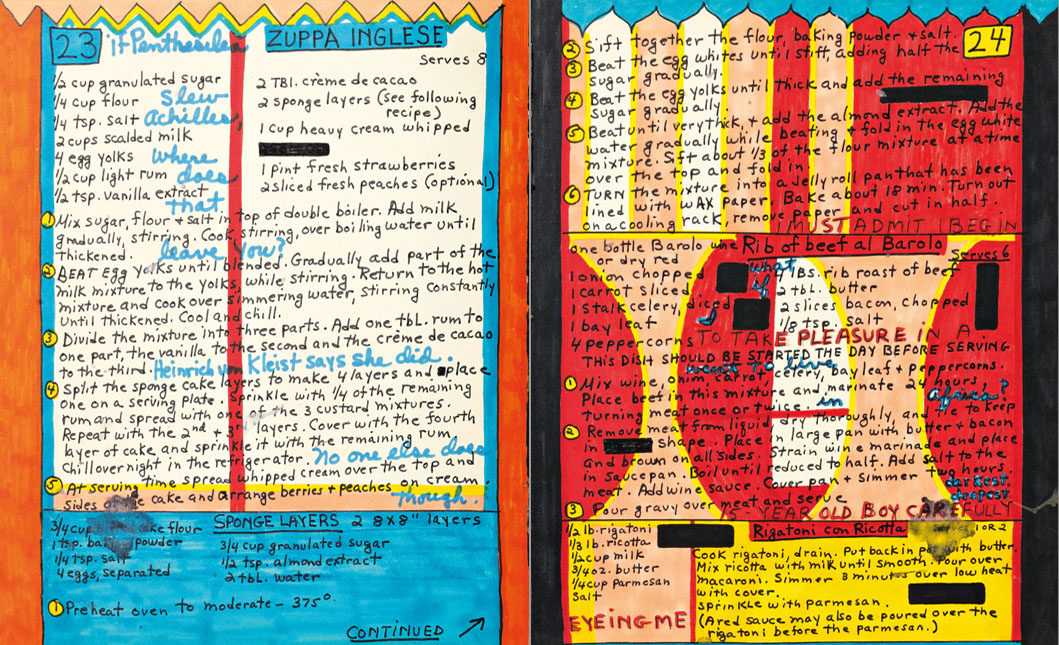 23
if Penthesilea
ZUPPA INGLESE
Serves 8
1/2 cup granulated sugar
1/4 cup flour
1/4 tsp. salt
2 cups scalded milk
4 egg yolks
1/2 cup light rum
1/2 tsp. vanilla extract
Slew
Achilles,
where
does
that
leave you?
2 TBl. crème de cacao
2 sponge layers (see following
recipe)
1 cup heavy cream whipped
1 pint fresh strawberries
2 sliced fresh peaches (optional)
1 Mix sugar, flour + salt in top of double boiler. Add milk
gradually, stirring. Cook stirring, over boiling water until
thickened.
2 BEAT Egg Yolks until blended. Gradually add part of the
milk mixture to the yolks, while stirring. Return to the hot
mixture and cook over simmering water, stirring constantly
until thickened. Cool and chill.
3 Divide the mixture into three parts. Add one tbl. rum to
one part, the vanilla to the second and the crème de cacao
to the third.
Heinrich von Kleist says she did.
4 Split the sponge cake layers to make 4 layers and place
one on a serving plate. Sprinkle with 1/4 of the remaining
rum and spread with one of the 3 custard mixtures.
Repeat with the 2nd + 3rd layers. Cover with the fourth
layer of cake and sprinkle it with the remaining rum
Chill overnight in the refrigerator.
No one else does
though.
5 At serving time spread whipped cream over the top and
sides of the cake and arrange berries + peaches on cream
SPONGE LAYERS 2 8x8" layers
3/4 cup cake flour
1 tsp. baking powder
1/4 tsp. salt
4 eggs, separated
3/4 cup granulated sugar
1/2 tsp. almond extract
2 tbl. water
1 Preheat oven to moderate - 375°.
CONTINUED
24
2 Sift together the flour, baking powder + salt.
3 Beat the egg whites until stiff, adding half the
sugar gradually.
4 Beat the egg yolks until thick and add the remaining
sugar gradually.
5 Beat until very thick, + add the almond extract. Add the
water gradually while beating + fold in the egg white
mixture. Sift about 1/3 of the flour mixture at a time
over the top and fold in.
6 TURN the mixture into a Jelly roll pan that has been
lined with wax paper. Bake about 18 min. Turn out
on a cooling rack, remove paper and cut in half.
I MUST ADMIT I BEGIN
Rib of beef al Barolo
Serves 6
one bottle Barolo wine
or dry red
1 onion chopped
1 carrot sliced
1 stalk celery, diced
1 bay leaf
4 peppercorns
4 lbs. rib roast of beef
2 tbl. butter
2 slices bacon, chopped
1/8 tsp. salt
what
if
I
went to live
in
africa?
darkest
deepest
TO TAKE PLEASURE IN A
THIS DISH SHOULD BE STARTED THE DAY BEFORE SERVING
1 Mix wine, onion, carrot, celery, bay leaf + peppercorns.
Place beef in this mixture and marinate 24 hours,
turning meat once or twice.
2 Remove meat from liquid, dry thoroughly, and tie to keep
in shape. Place in large pan with butter + bacon
and brown on all sides. Strain wine marinade and place
in saucepan. Boil until reduced to half. Add salt to the
meat. Add wine sauce. Cover pan + Simmer two hours.
3 Pour gravy over meat and serve
YEAR OLD BOY CAREFULLY
Rigatoni con Ricotta
1 OR 2
1/2 lb. rigatoni
1/3 lb. ricotta
1/2 cup milk
3/4 oz. butter
1/4 cup parmesan
Salt
Cook rigatoni, drain. Put back in pot with butter.
Mix ricotta with milk until smooth. Pour over
macaroni. Simmer 8 minutes over low heat
with cover.
sprinkle with parmesan.
(A red sauce may also be poured over the
rigatoni before the parmesan.)
EYEING ME